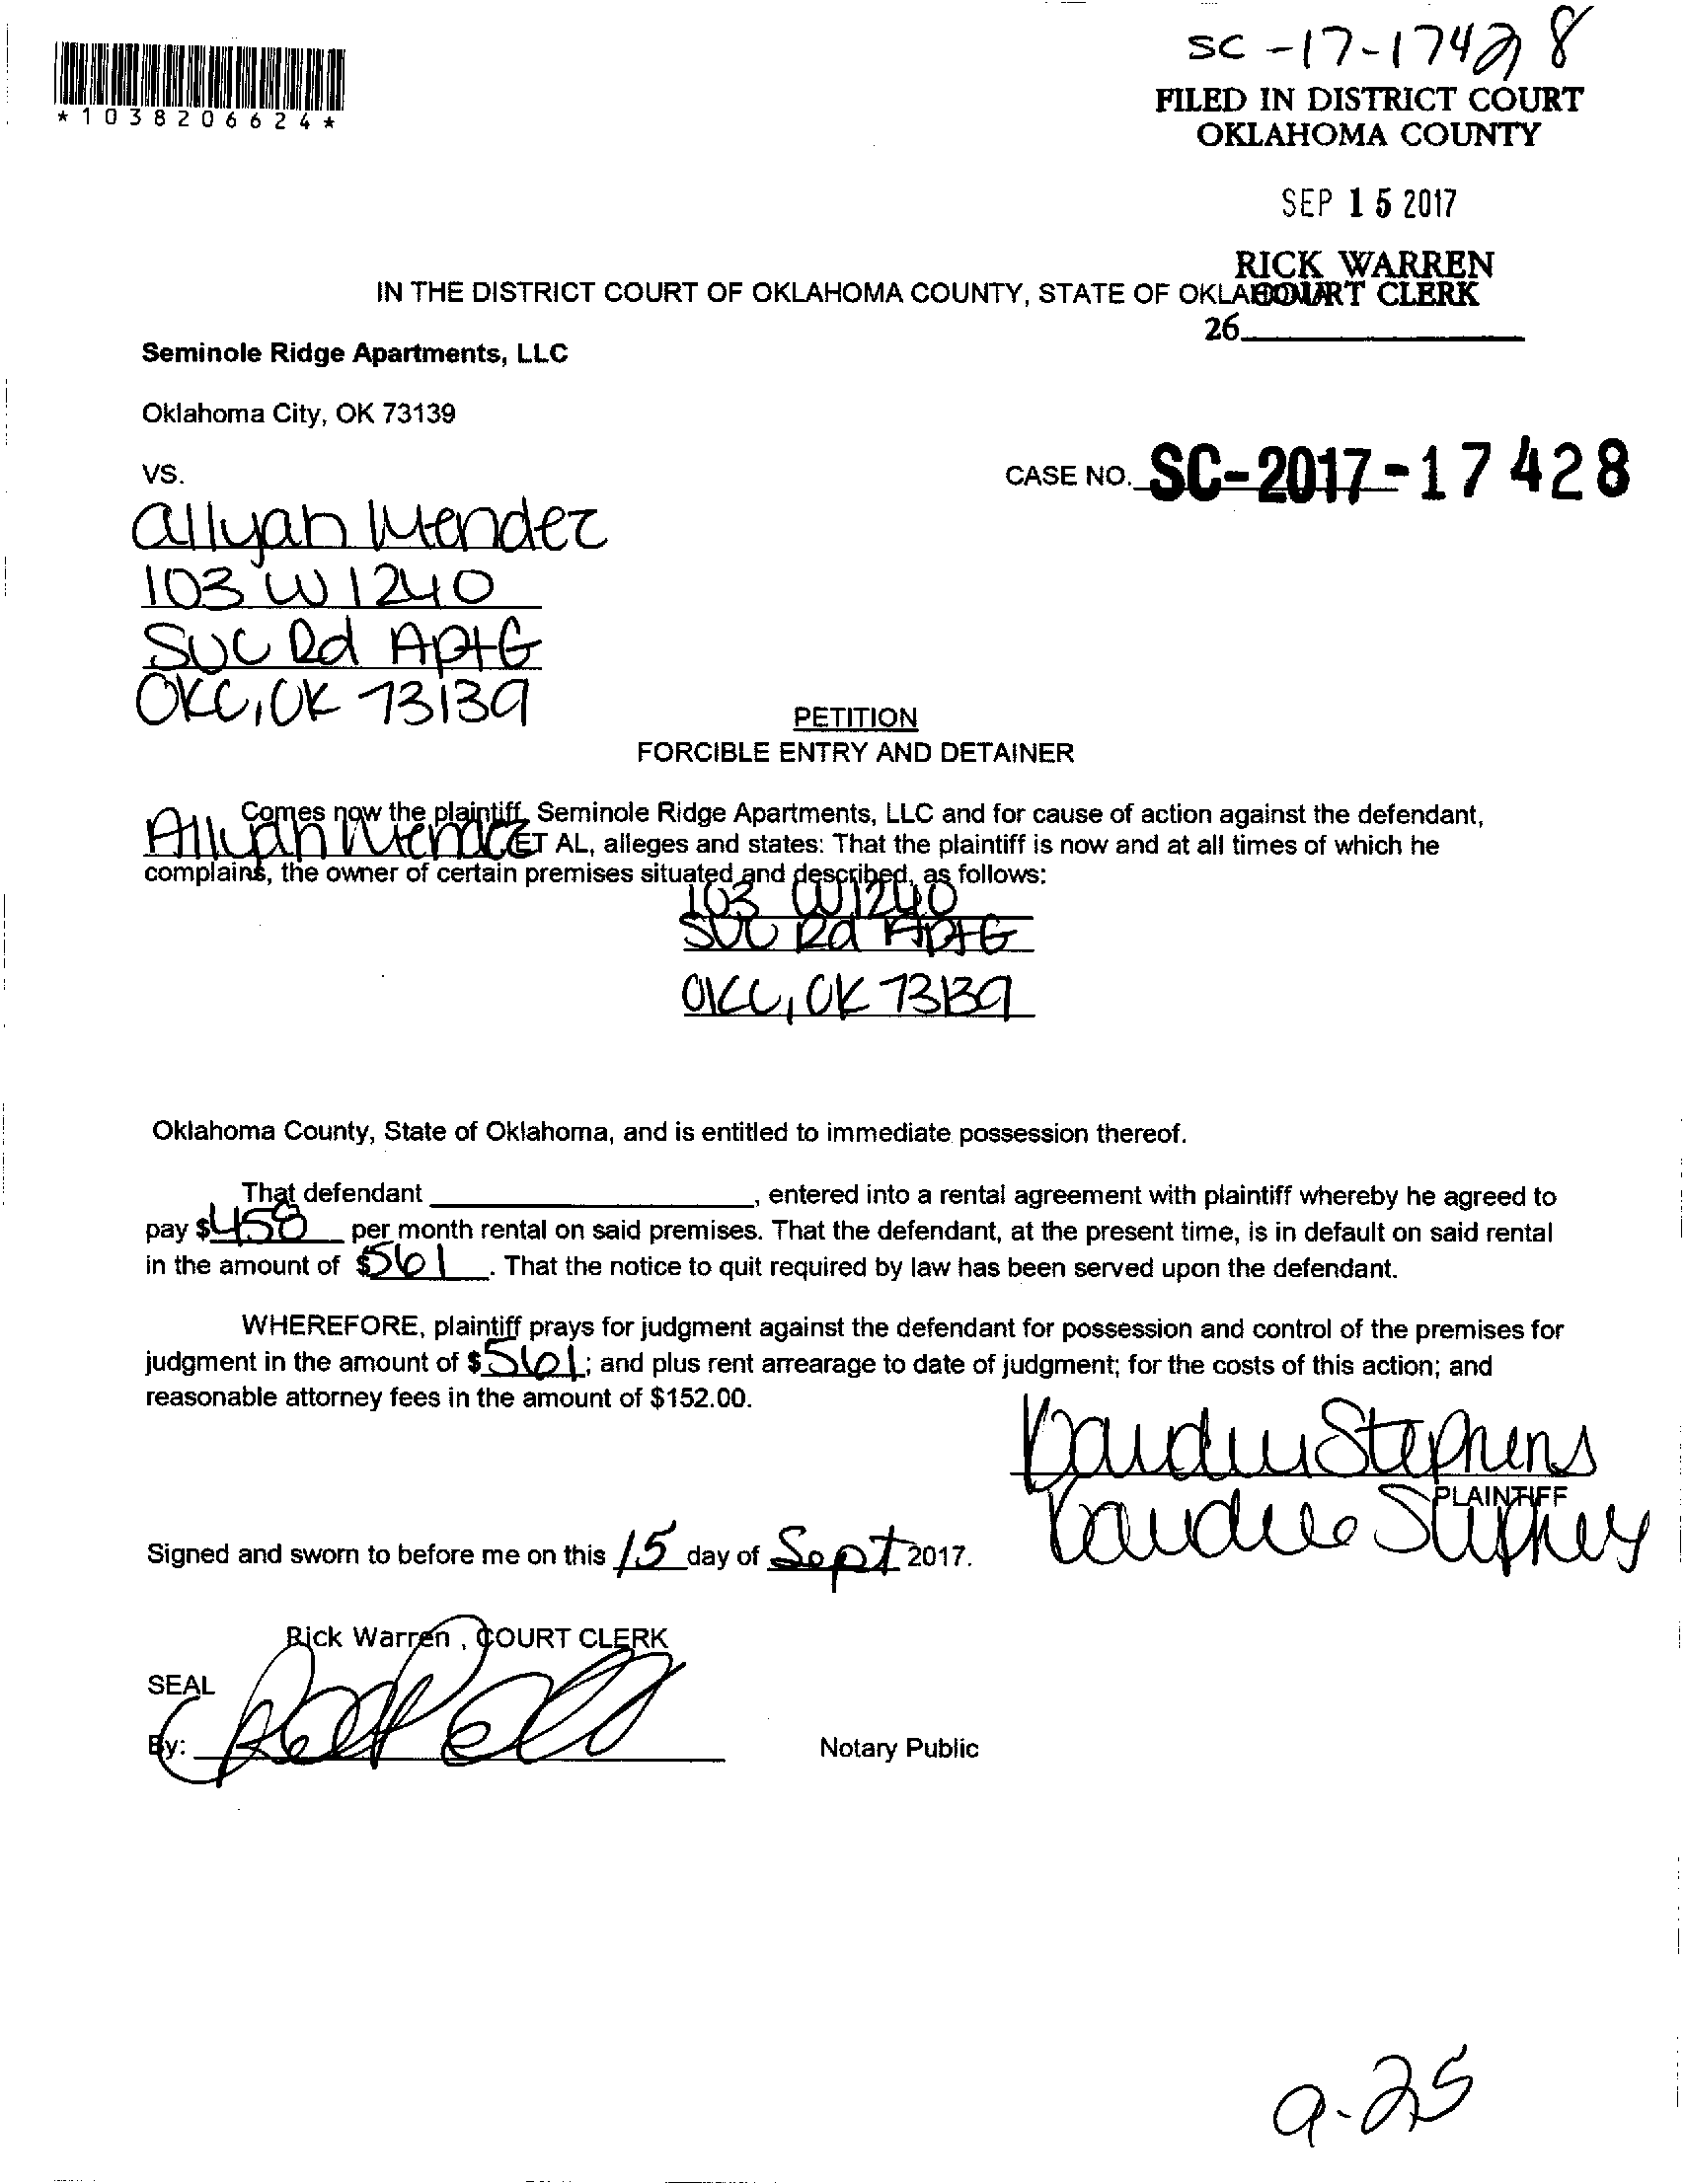 SC-17-17428
FILED IN DISTRICT COURT
OKLAHOMA COUNTY
*1038206624*
SEP 15 2017
RICK WARREN
COURT CLERK
IN THE DISTRICT COURT OF OKLAHOMA COUNTY, STATE OF
26
Seminole Ridge Apartments, LLC
Oklahoma City, OK 73139
VS.
CASE NO. SC-2017-17428
Allyah Mendez
103 W 1240
Rd Apt G
OKC, OK 73139
PETITION
FORCIBLE ENTRY AND DETAINER
Comes now the plaintiff, Seminole Ridge Apartments, LLC and for cause of action against the defendant,
Allyah Mendez ET AL, alleges and states: That the plaintiff is now and at all times of which he
complains, the owner of certain premises situated and described, as follows:
103 W 1240
Rd Apt G
OKC, OK 73139
Oklahoma County, State of Oklahoma, and is entitled to immediate possession thereof.
That defendant , entered into a rental agreement with plaintiff whereby he agreed to
pay $458 per month rental on said premises. That the defendant, at the present time, is in default on said rental
in the amount of $561. That the notice to quit required by law has been served upon the defendant.
WHEREFORE, plaintiff prays for judgment against the defendant for possession and control of the premises for
judgment in the amount of $561; and plus rent arrearage to date of judgment; for the costs of this action; and
reasonable attorney fees in the amount of $152.00.
Stephens
PLAINTIFF
Signed and sworn to before me on this 15 day of Sept 2017.
Rick Warren, COURT CLERK
SEAL
By:
Notary Public
9-25